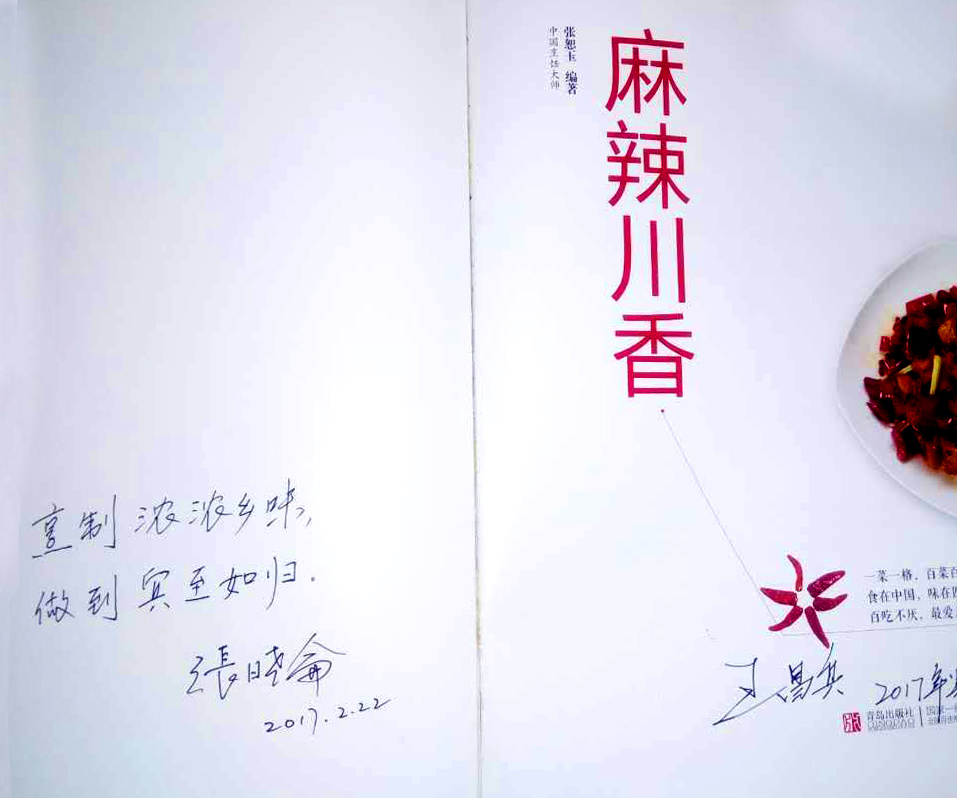 烹制浓浓乡味,
做到宾至如归.
張晓侖
2017.2.22
麻辣川香
张恕玉 编著
中国烹饪大师
一菜一格，百菜百
食在中国，味在四
百吃不厌，最爱
王昌兵 2017年
青岛出版社
国家一